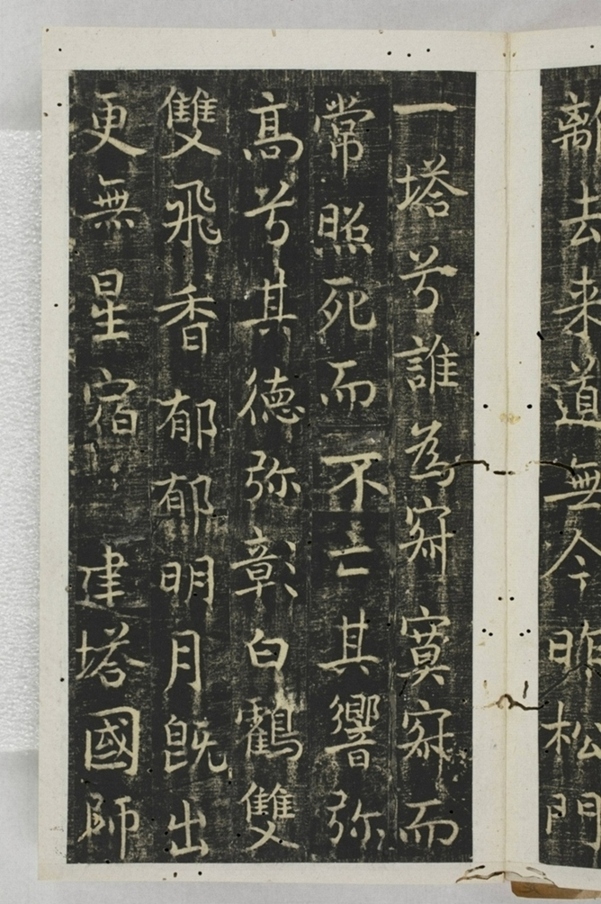 離去来道無今明松門
一塔兮誰為寂寞寂而
常照死而不亡其響弥
髙兮其徳弥彰白鸖雙
雙飛香郁郁明月既出
更無星宿　建塔國師